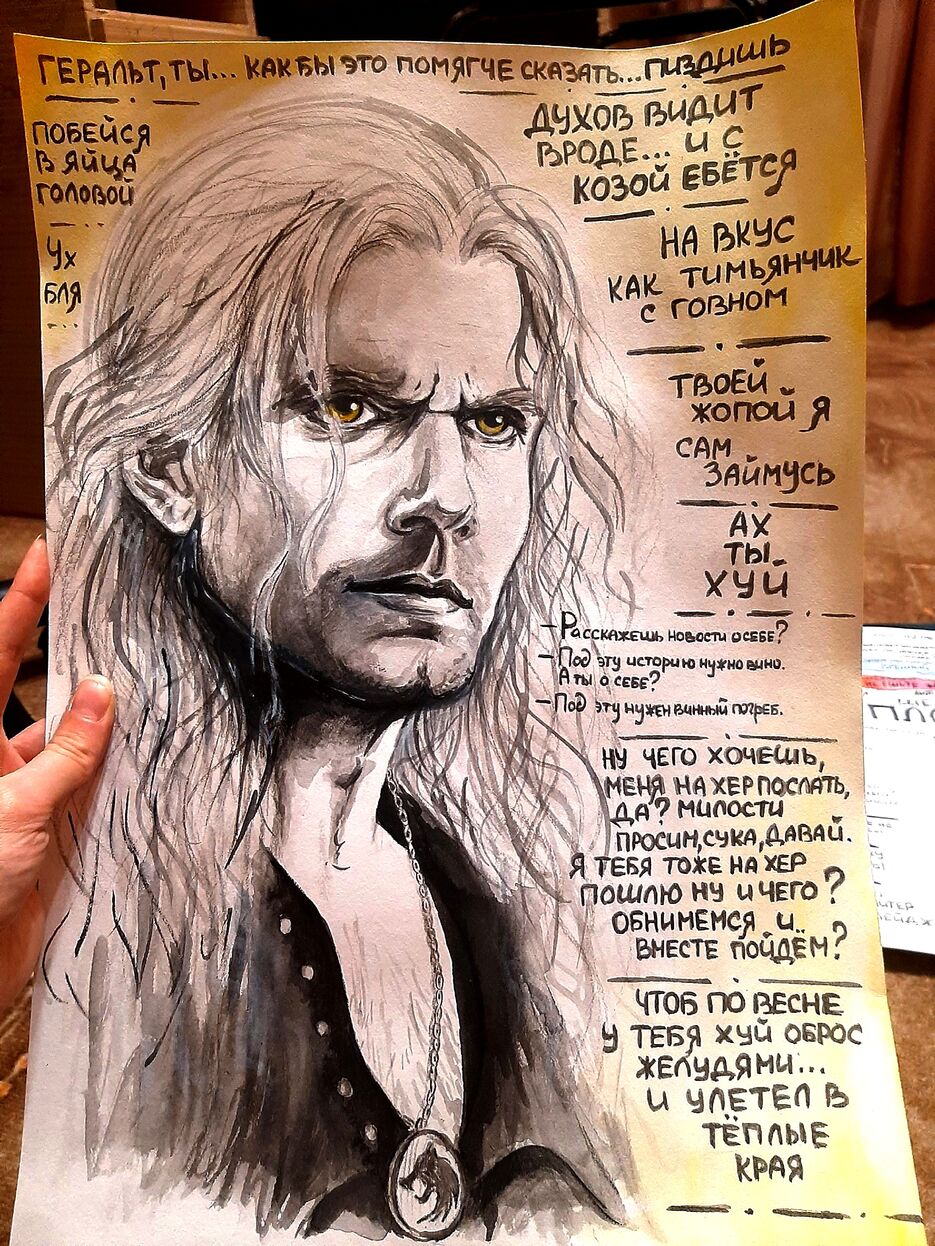 ГЕРАЛЬТ, ТЫ... КАК БЫ ЭТО ПОМЯГЧЕ СКАЗАТЬ... ПИЗДИШЬ
ПОБЕЙСЯ
В ЯЙЦА
ГОЛОВОЙ
УХ
БЛЯ
...
ДУХОВ ВИДИТ
ВРОДЕ... И С
КОЗОЙ ЕБЁТСЯ
НА ВКУС
КАК ТИМЬЯНЧИК
С ГОВНОМ
ТВОЕЙ
ЖОПОЙ Я
САМ
ЗАЙМУСЬ
АХ
ТЫ
ХУЙ
– РАССКАЖЕШЬ НОВОСТИ О СЕБЕ?
– ПОД ЭТУ ИСТОРИЮ НУЖНО ВИНО.
А ТЫ О СЕБЕ?
– ПОД ЭТУ НУЖЕН ВИННЫЙ ПОГРЕБ.
НУ ЧЕГО ХОЧЕШЬ,
МЕНЯ НА ХЕР ПОСЛАТЬ,
ДА? МИЛОСТИ
ПРОСИМ, СУКА, ДАВАЙ.
Я ТЕБЯ ТОЖЕ НА ХЕР
ПОШЛЮ НУ И ЧЕГО?
ОБНИМЕМСЯ И..
ВМЕСТЕ ПОЙДЕМ?
ЧТОБ ПО ВЕСНЕ
У ТЕБЯ ХУЙ ОБРОС
ЖЕЛУДЯМИ...
И УЛЕТЕЛ В
ТЁПЛЫЕ
КРАЯ